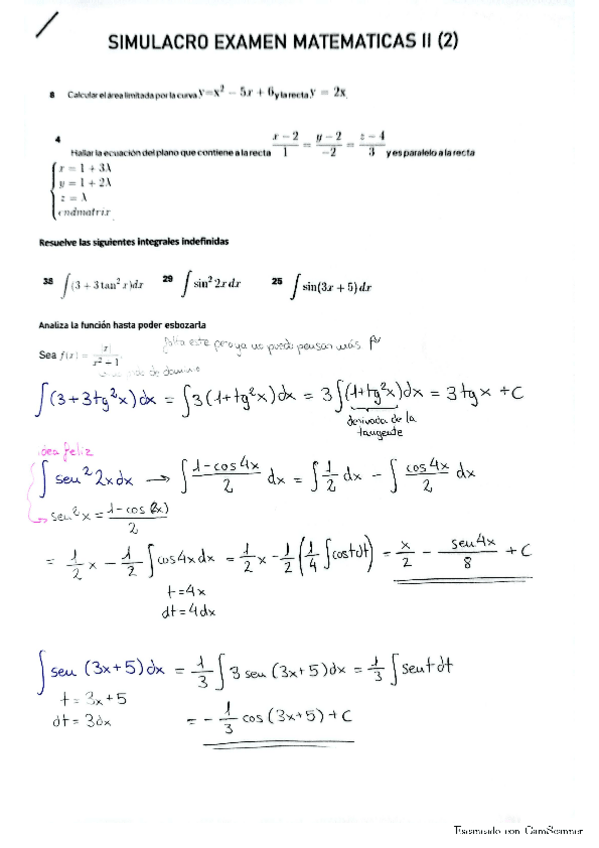 SIMULACRO EXAMEN MATEMATICAS II (2)
8 Calcular el área limitada por la curva y=x² − 5x + 6 y la recta y = 2x.
4
Hallar la ecuación del plano que contiene a la recta (x − 2)/1 = (y − 2)/−2 = (z − 4)/3 y es paralelo a la recta
{x = 1 + 3λ
y = 1 + 2λ
z = λ
endmatrix.
Resuelve las siguientes integrales indefinidas
38 ∫(3 + 3 tan² x)dx 29 ∫ sin² 2x dx 25 ∫ sin(3x + 5)dx
Analiza la función hasta poder esbozarla
falta este proya no puedo pensar más
Sea f(x) = |x|/(x² − 1)
de dominio
∫(3+3tg²x)dx = ∫3(1+tg²x)dx = 3∫(1+tg²x)dx = 3tgx + C
derivada de la
tangente
idea feliz
∫ sen² 2x dx → ∫ (1−cos4x)/2 dx = ∫ 1/2 dx − ∫ cos4x/2 dx
sen²x = (1−cos(2x))/2
= 1/2 x − 1/2 ∫cos4xdx = 1/2 x − 1/2 (1/4 ∫costdt) = x/2 − sen4x/8 + C
t=4x
dt=4dx
∫ sen (3x+5)dx = 1/3 ∫ 3 sen (3x+5)dx = 1/3 ∫ sentdt
t = 3x+5
dt = 3dx = − 1/3 cos (3x+5) + C
Escaneado con CamScanner